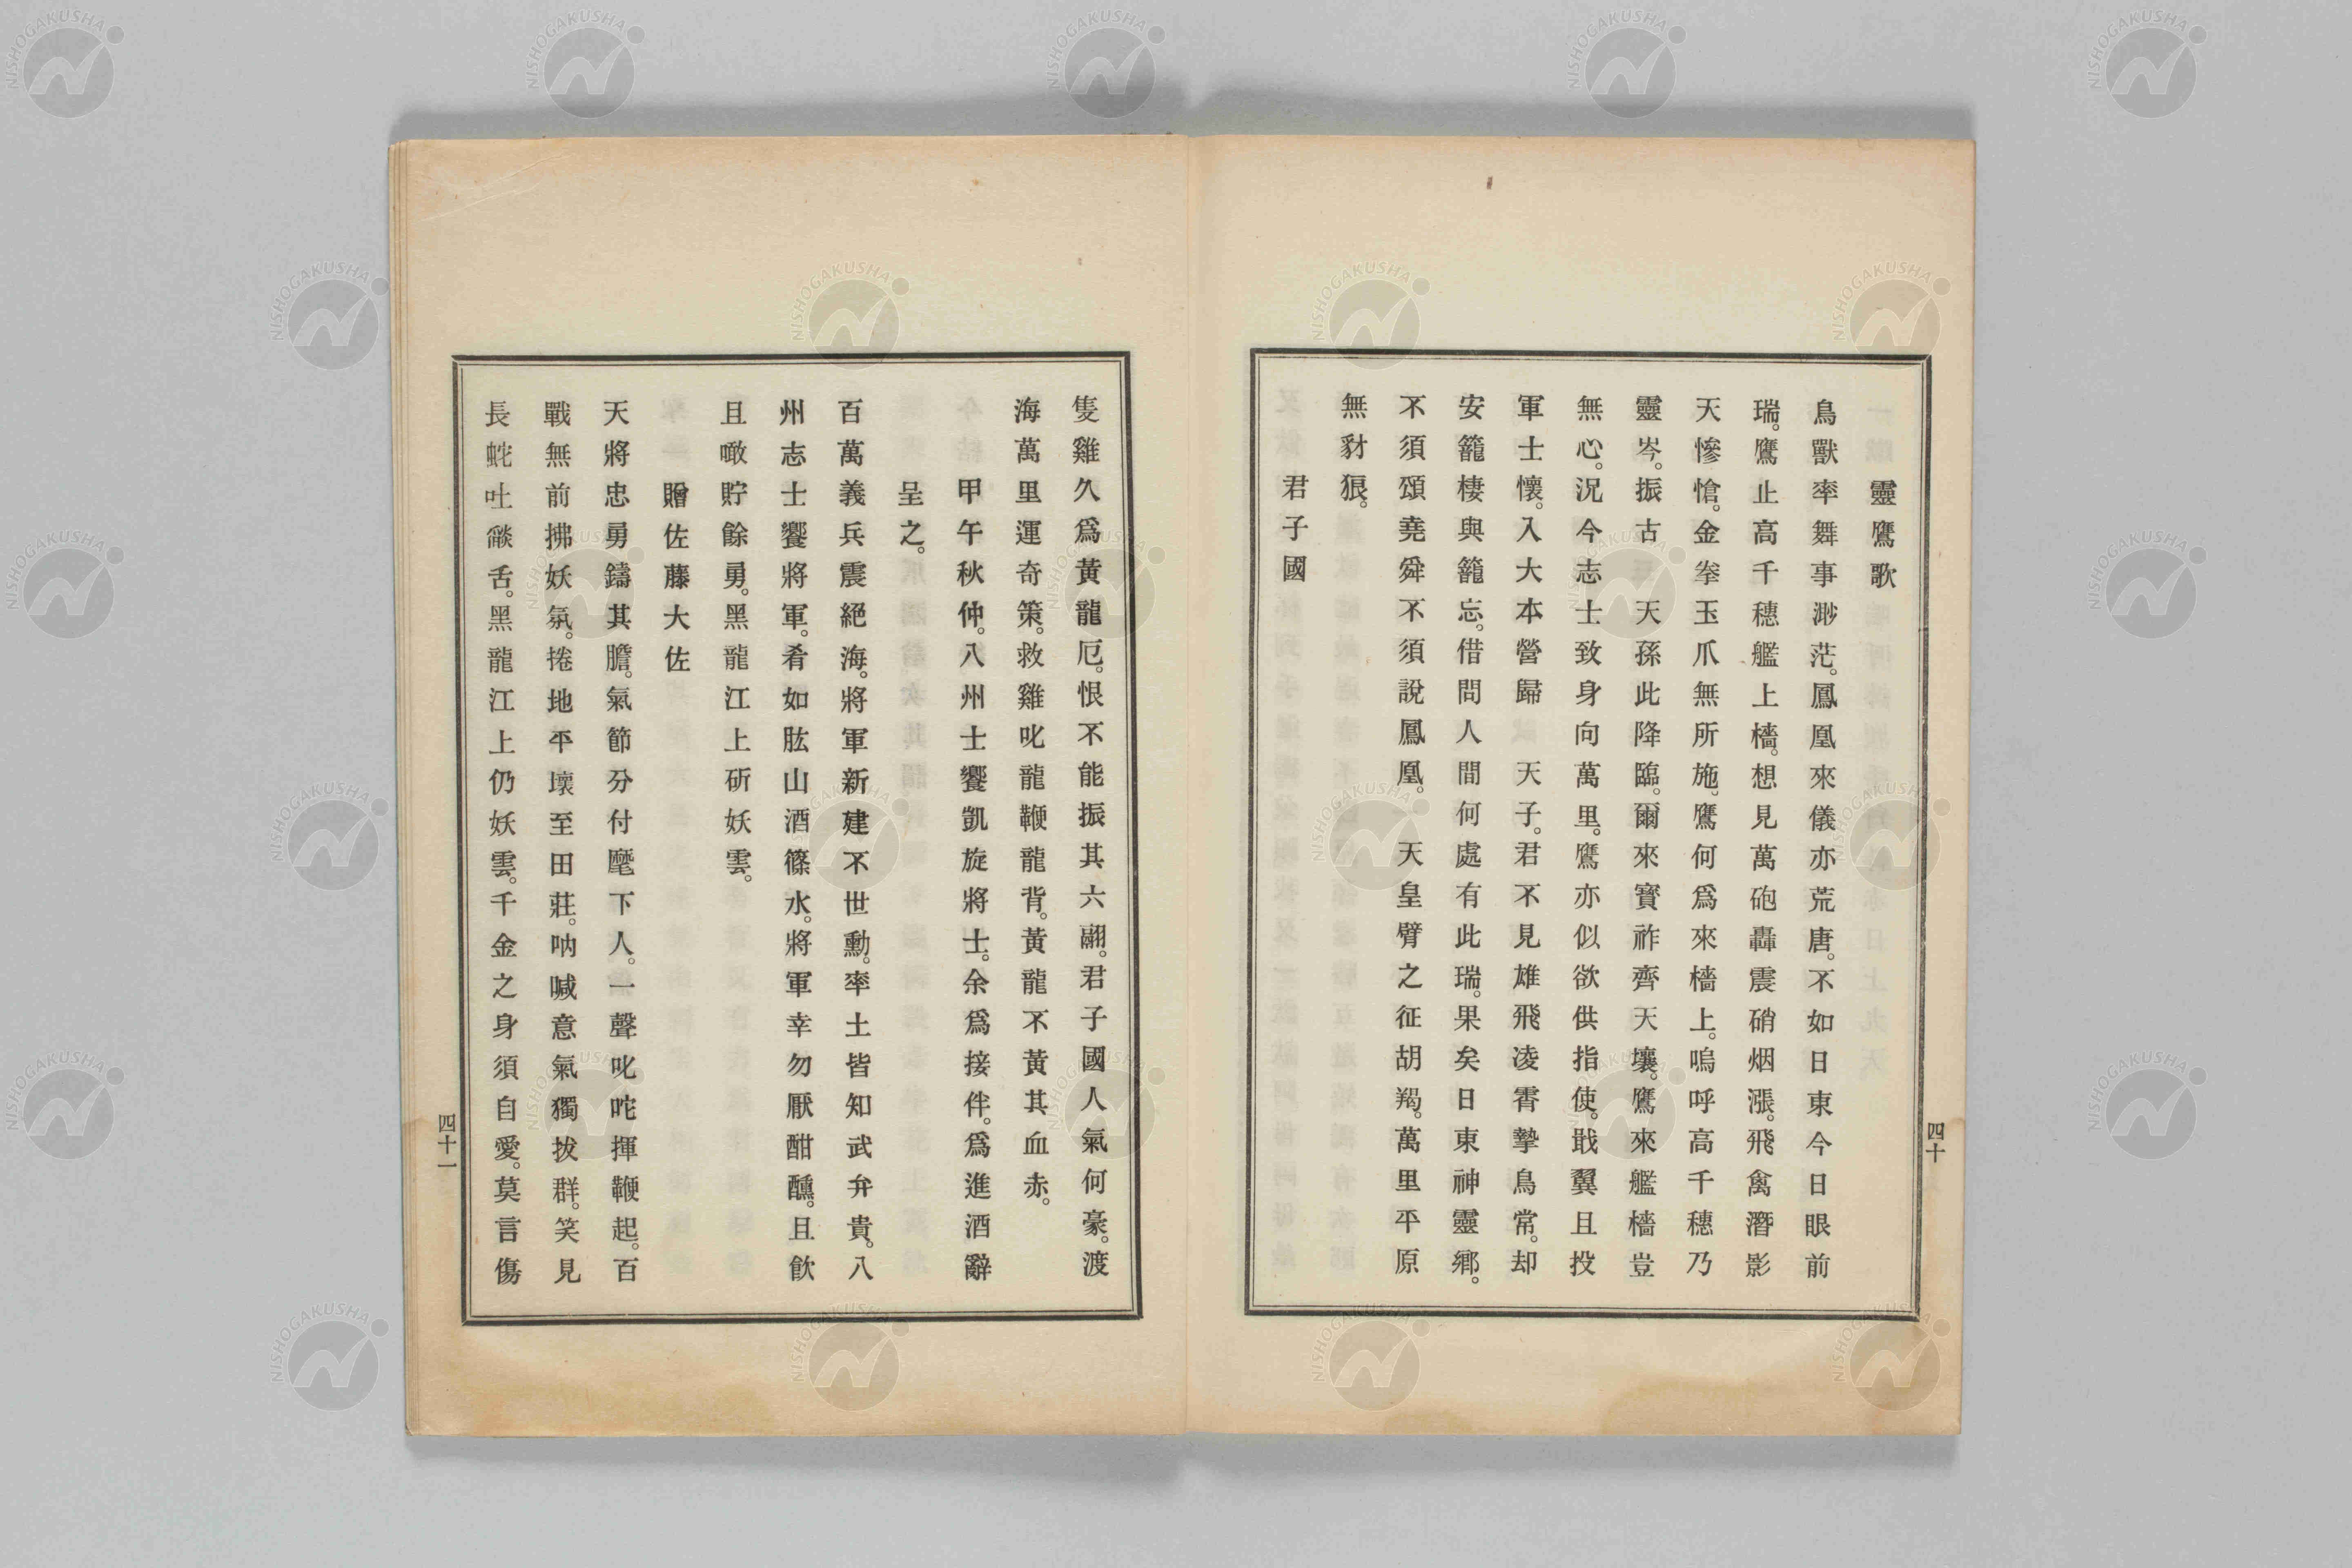 靈鷹歌
鳥獸率舞事渺茫。鳳凰來儀亦荒唐。不如日東今日眼前
瑞。鷹止高千穗艦上檣。想見萬砲轟震硝烟漲。飛禽潛影
天慘愴。金拳玉爪無所施。鷹何爲來檣上。嗚呼高千穗乃
靈岑。振古　天孫此降臨。爾來寶祚齊天壤。鷹來艦檣豈
無心。況今志士致身向萬里。鷹亦似欲供指使。戢翼且投
軍士懷。入大本營歸　天子。君不見雄飛凌霄摯鳥常。却
安籠棲與籠忘。借問人間何處有此瑞。果矣日東神靈鄕。
不須頌堯舜不須說鳳凰。　天皇臂之征胡羯。萬里平原
無豺狠。
君子國
四十
隻雞久爲黃龍厄。恨不能振其六翮。君子國人氣何豪。渡
海萬里運奇策。救雞叱龍鞭龍背。黃龍不黃其血赤。
甲午秋仲。八州士饗凱旋將士。余爲接伴。爲進酒辭
呈之。
百萬義兵震絕海。將軍新建不世勳。率土皆知武弁貴。八
州志士饗將軍。肴如肱山酒篠水。將軍幸勿厭酣醺。且飮
且噉貯餘勇。黑龍江上斫妖雲。
贈佐藤大佐
天將忠勇鑄其膽。氣節分付麾下人。一聲叱咤揮鞭起。百
戰無前拂妖氛。捲地平壤至田莊。吶喊意氣獨拔群。笑見
長蛇吐燄舌。黑龍江上仍妖雲。千金之身須自愛。莫言傷
四十一
NISHOGAKUSHA